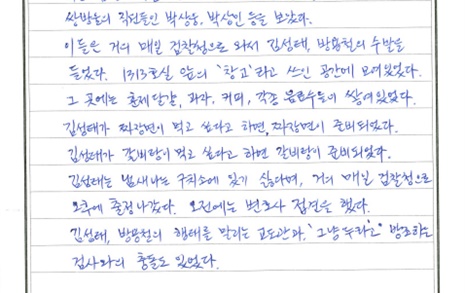 쌍방울의 직원들인 박상웅, 박상민 등을 보았다.
이들은 거의 매일 검찰청으로 와서 김성태, 방용철의 수발을
들었다. 1313호실 앞의 '창고'라고 쓰인 공간에 모여있었다.
그 곳에는 훈제달걀, 과자, 커피, 각종 음료수들이 쌓여있었다.
김성태가 짜장면이 먹고 싶다고 하면, 짜장면이 준비되었다.
김성태가 갈비탕이 먹고 싶다고 하면 갈비탕이 준비되었다.
김성태는 냄새나는 구치소에 있기 싫다며, 거의 매일 검찰청으로
오후에 출정 나갔다. 오전에는 변호사 접견을 했다.
김성태, 방용철의 행태를 말리는 교도관과 "그냥 두라"고 방조하는
검사와의 충돌도 있었다.